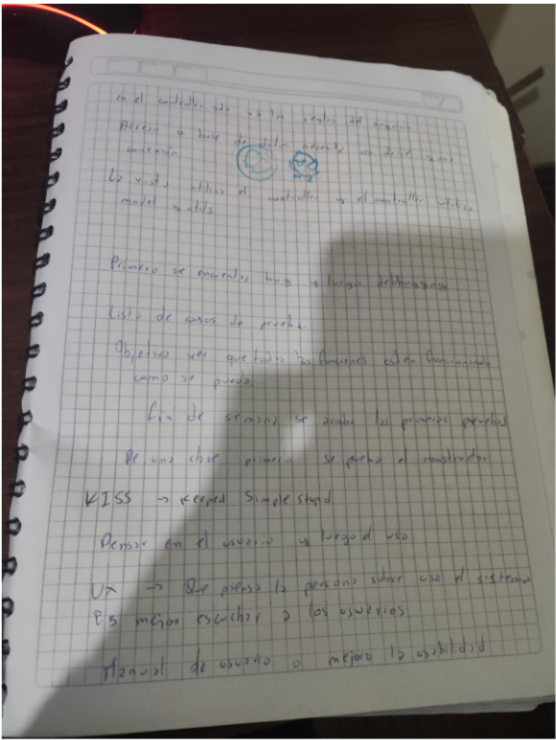 en el controller van las reglas de negocio
Acceso a base de datos
conexión
La vista utiliza el controller y el controller utiliza
model y utils
Primero se encuentra bugs y luego
Lista de casos de prueba
Objetivo ver que todas las funciones esten funcionando
como se pueda
fin de semana se acaba las primeras pruebas
De una clase primero se prueba el constructor
KISS → Keeped Simple Stupid
Pensar en el usuario y luego el uso
UX → Que piensa la persona sobre uso el sistema
Es mejor escuchar a los usuarios
Manual de usuario o mejora la usabilidad